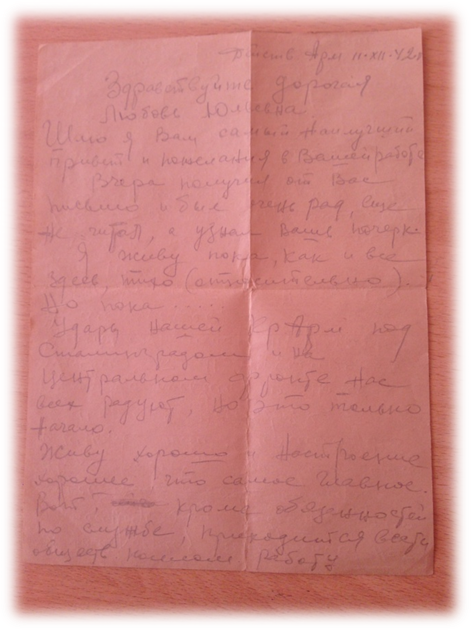 Действ. Арм 11-XII-42г
Здравствуйте дорогая
Любовь Юльевна.
Шлю я Вам самый наилучший
привет и пожелания в Вашей работе
Вчера получил от Вас
письмо и был очень рад, еще
не читал, а узнал Ваш почерк.
Я живу пока, как и все
здесь, тихо (относительно).
Но пока ......
Удары нашей Кр Арм под
Сталинградом и на
центральном фронте нас
всех радуют, но это только
начало.
Живу хорошо и настроение
хорошее, что самое главное.
Вот, кроме обязанностей
по службе приходится вести
обществ работу